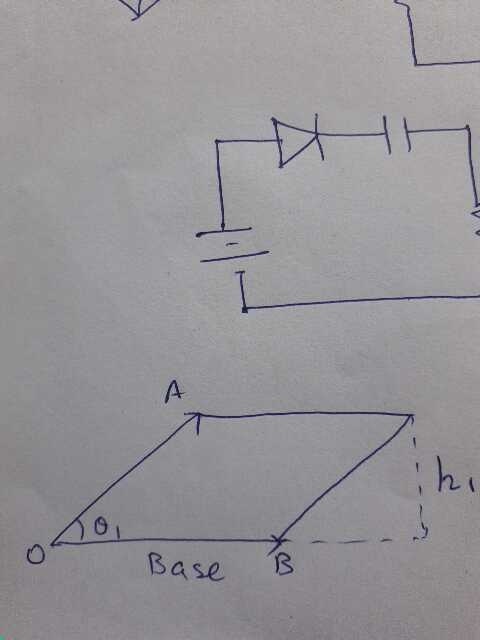 A
h₁
θ₁
O
Base B